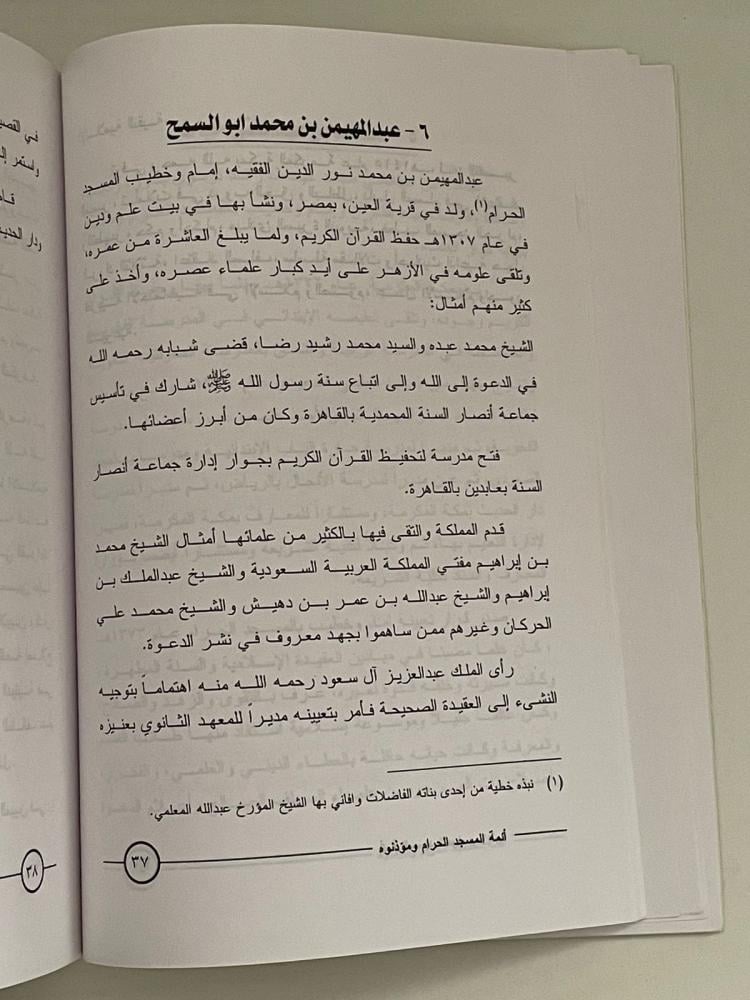 ٦- عبدالمهيمن بن محمد ابو السمح
عبدالمهيمن بن محمد نور الدين الفقيه، إمام وخطيب المسجد
الحرام(١)، ولد في قرية العين، بمصر، ونشأ بها في بيت علم ودين
في عام ١٣٠٧هـ حفظ القرآن الكريم، ولما يبلغ العاشرة من عمره،
وتلقى علومه في الأزهر على أيد كبار علماء عصره، وأخذ على
كثير منهم أمثال:
الشيخ محمد عبده والسيد محمد رشيد رضا، قضى شبابه رحمه الله
في الدعوة إلى الله وإلى اتباع سنة رسول الله ﷺ، شارك في تأسيس
جماعة أنصار السنة المحمدية بالقاهرة وكان من أبرز أعضائها.
فتح مدرسة لتحفيظ القرآن الكريم بجوار إدارة جماعة أنصار
السنة بعابدين بالقاهرة.
قدم المملكة والتقى فيها بالكثير من علمائها أمثال الشيخ محمد
بن إبراهيم مفتي المملكة العربية السعودية والشيخ عبدالملك بن
إبراهيم والشيخ عبدالله بن عمر بن دهيش والشيخ محمد علي
الحركان وغيرهم ممن ساهموا بجهد معروف في نشر الدعوة.
رأى الملك عبدالعزيز آل سعود رحمه الله منه اهتماماً بتوجيه
النشىء إلى العقيدة الصحيحة فأمر بتعيينه مديراً للمعهد الثانوي بعنيزه
(١) نبذه خطية من إحدى بناته الفاضلات وافاني بها الشيخ المؤرخ عبدالله المعلمي.
أئمة المسجد الحرام ومؤذنوه
٣٧
في القصي
واستمر إل
ودار الحدي
٣٨